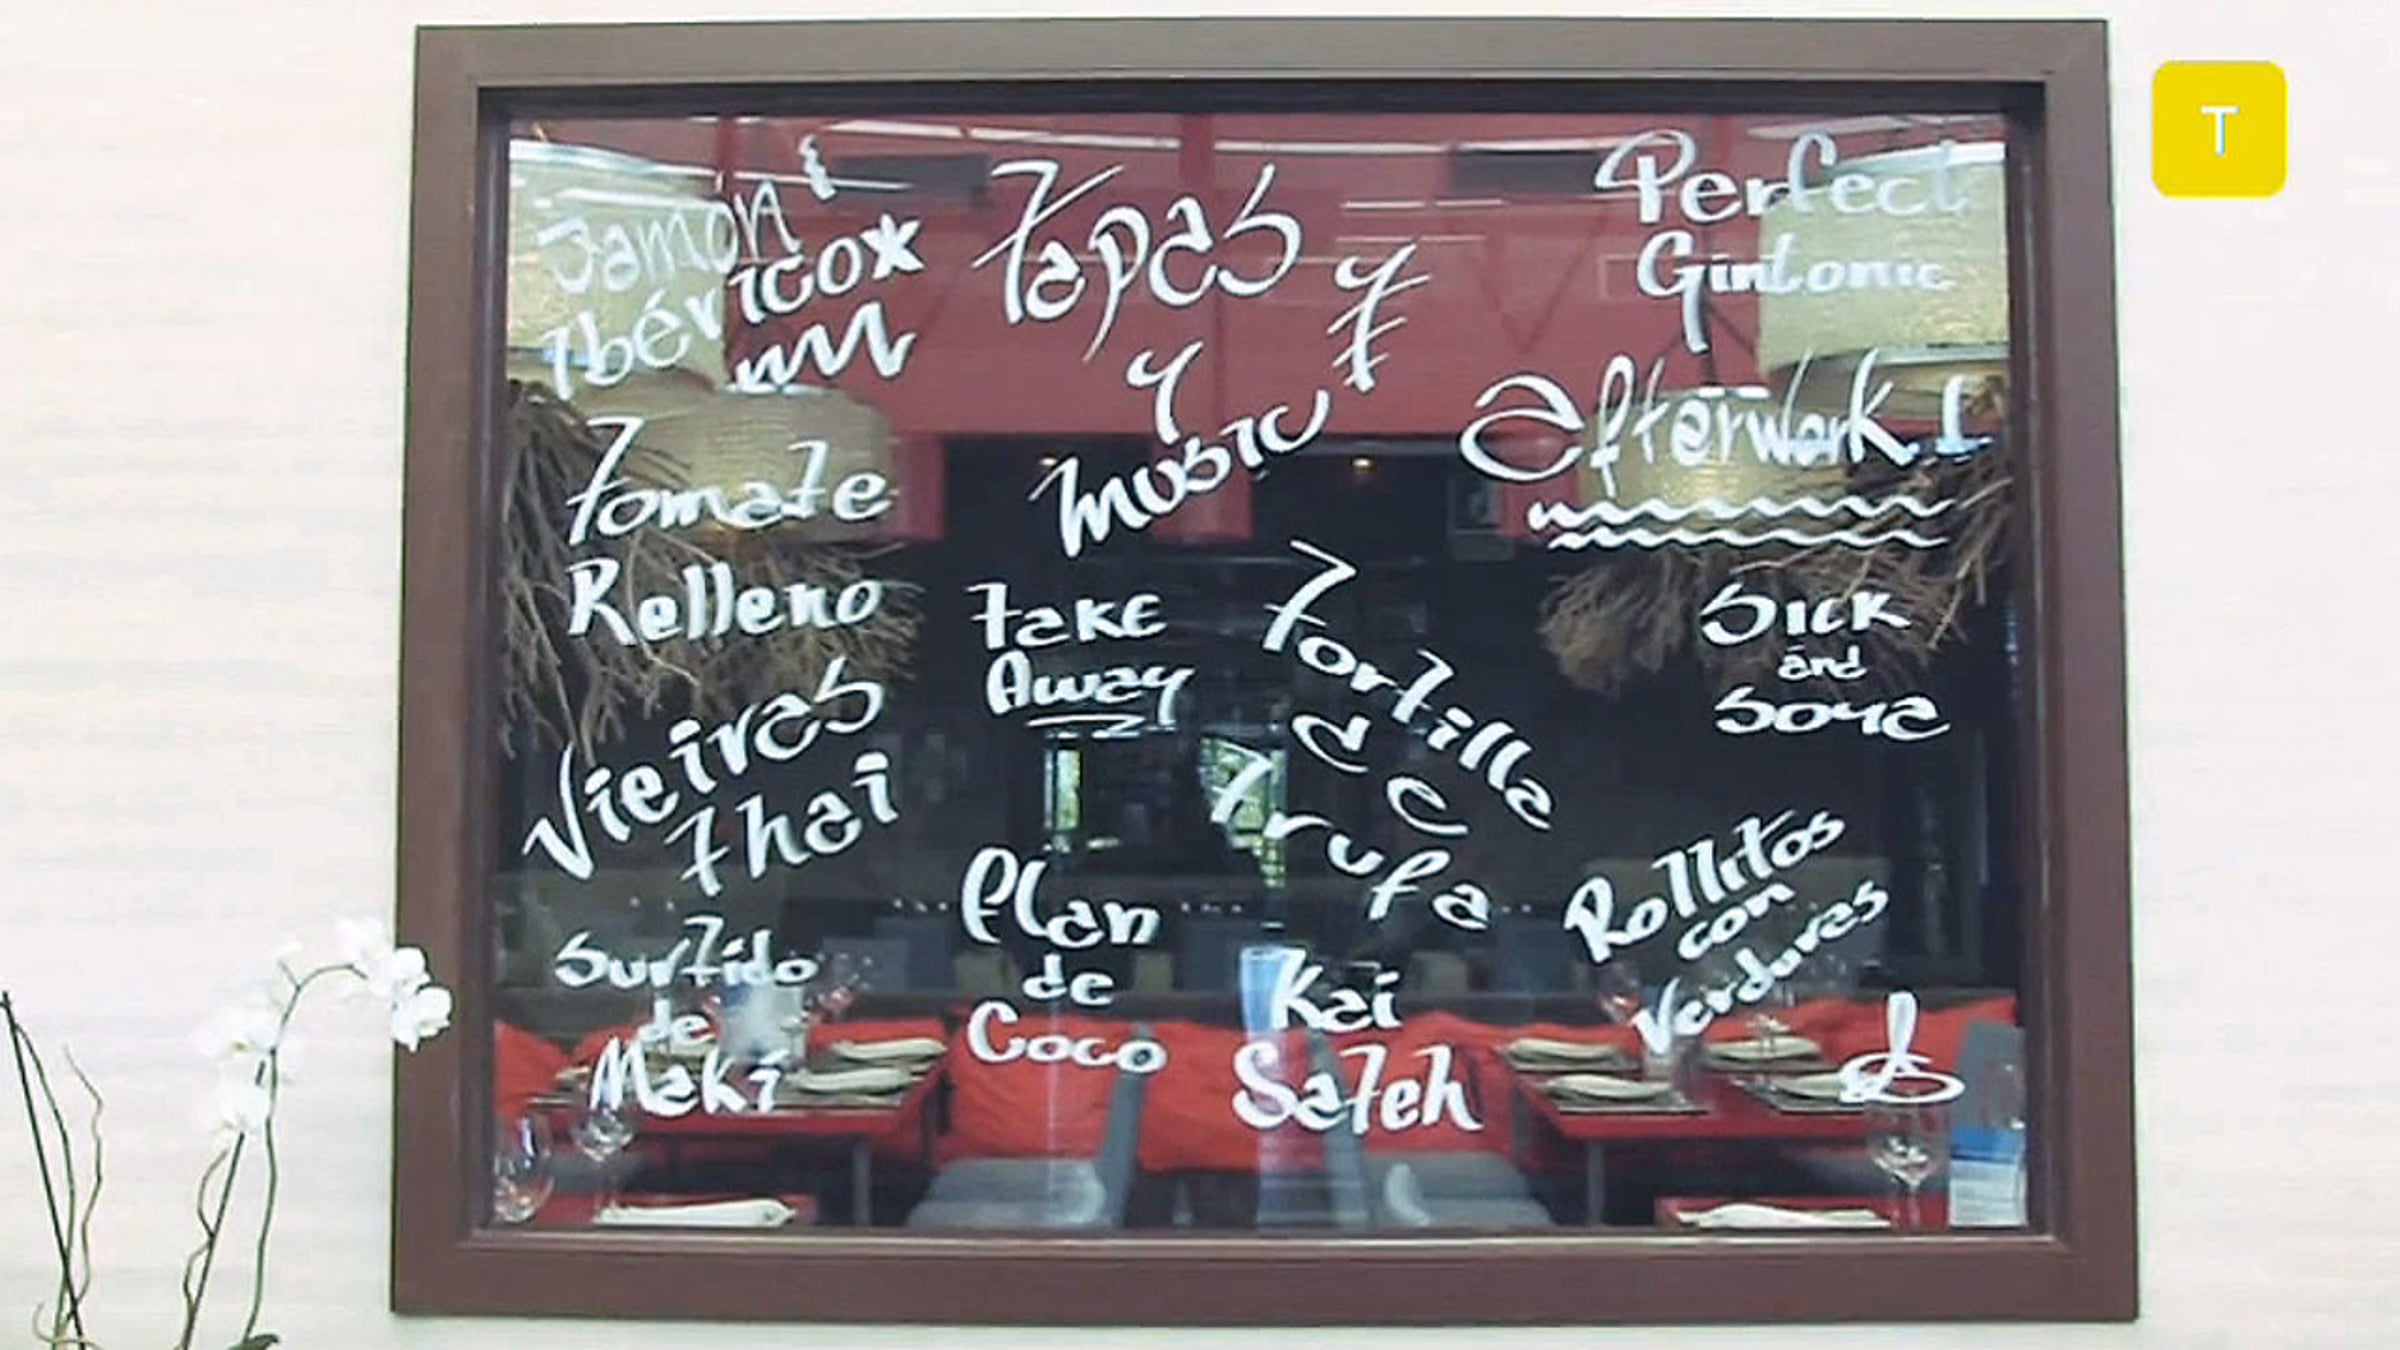 Jamón
Ibérico*
Tomate
Relleno
Vieiras
Thai
Surtido
de
Maki
Tapas
y
Music
Take
Away
Flan
de
Coco
Tortilla
de
Trufa
Kai
Sateh
Perfect
Gintonic
afterwork!
Sick
and
Soya
Rollitos
con
Verduras
T